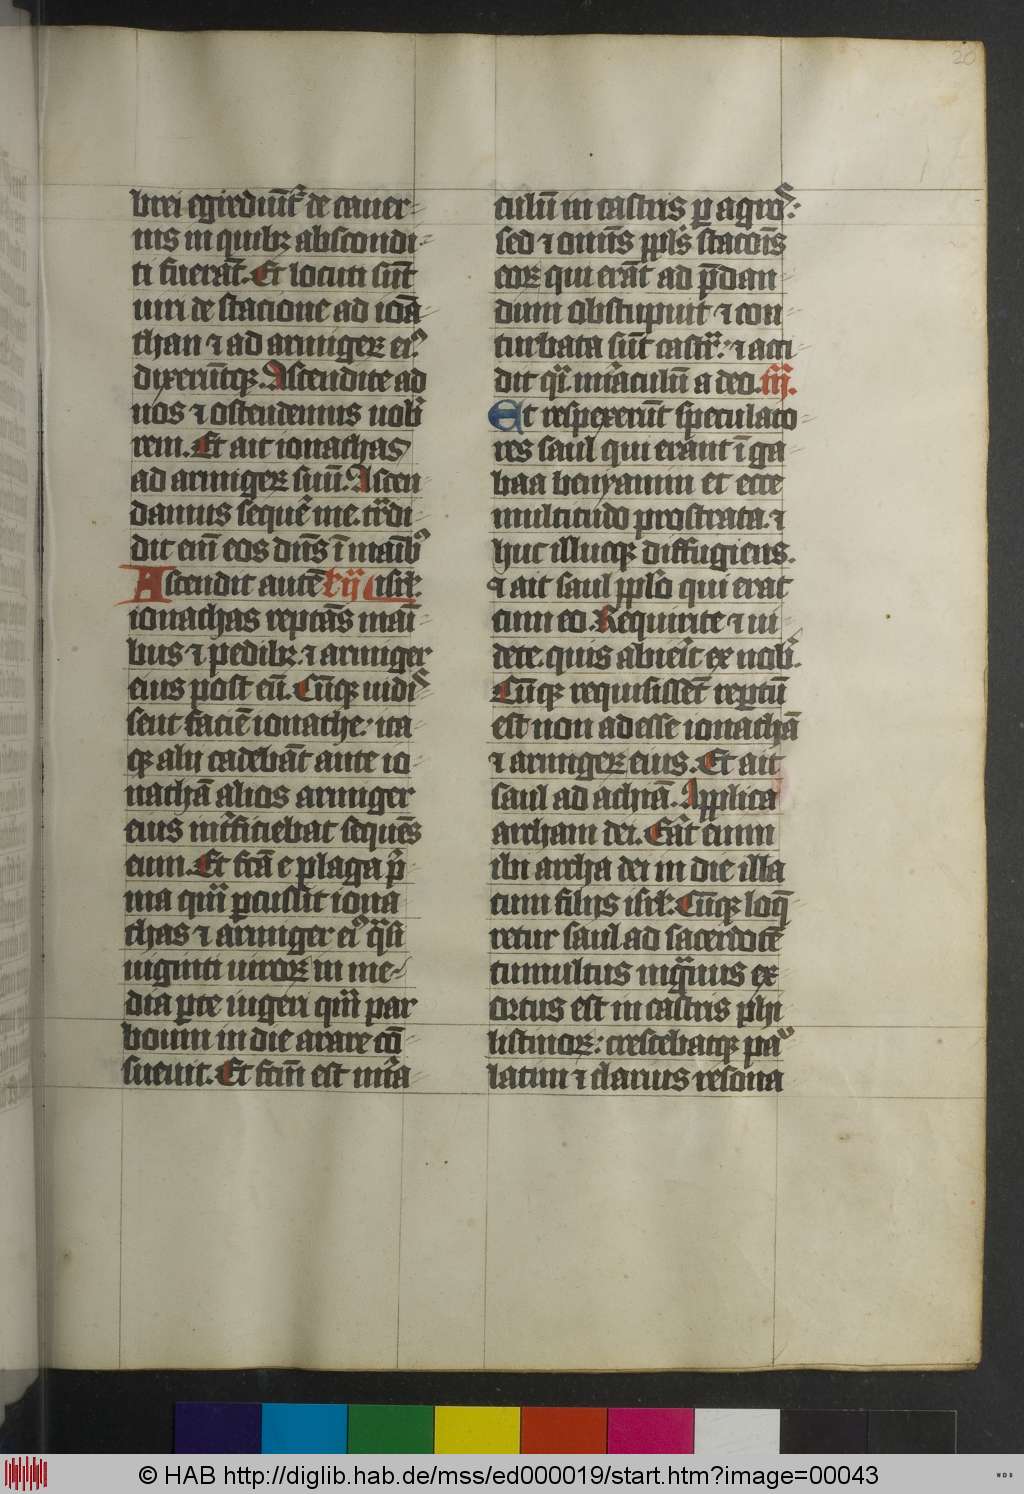 20
brei egrediūt᷑ de cauer
nis in quibꝫ abscondi
ti fuerāt. Et locuti sūt
uiri de stacione ad ionā
than ⁊ ad armigeꝝ eiꝰ
dixerūtqꝫ. Ascendite ad
uos ⁊ ostendemus uob̄
rem. Et ait ionathas
ad armigeꝝ suū. Ascen
damus sequē me. tͣdi
dit eīm eos dn̄s ī maībꝰ
Ascendit autē isrl̓.
ionathas reptās manī
bus ⁊ pedibꝫ ⁊ armiger
eius post eū. Cūqꝫ uidiſ
sent faciē ionathe. ita
qꝫ alij cadebāt ante io
nathā alios armiger
eius int̓ficiebat sequēs
eum. Et fcā ē plaga p̓
ma quā ꝑcussit iona
thas ⁊ armiger eiꝰ qͣsi
uiginti uiroꝝ in me
dia ꝑte iugeri quā par
boum in die arare cō
sueuit. Et fcm̄ est mira
culū in castris ꝑ agros.
sed ⁊ om̄is ppl̓s stacōis
eoꝝ qui erāt ad p̄dan
dum obstupuit ⁊ con
turbata sūt castrͣ. ⁊ acci
dit qͣi miraculū a deo. iij.
Et respexerūt speculato
res saul qui erant ī ga
baa benyamin et ecce
multitudo prostrata. ⁊
huc illucqꝫ diffugiens.
⁊ ait saul ppl̓o qui erat
cum eo. Requirite ⁊ ui
dete. quis abierit ex nob̄.
Cūqꝫ requisissēt reꝑtū
est non adesse ionathā
⁊ armigeꝝ eius. Et ait
saul ad achiā. Applica
archam dei. Erāt enim
ibi archa dei in die illa
cum filijs isrl̓. Cūqꝫ loq̄
retur saul ad sacerdotē
tumultus mͣgnus ex
ortus est in castris phi
listinoꝝ. crescebatqꝫ paꝰ
latim ⁊ clarius resona
© HAB http://diglib.hab.de/mss/ed000019/start.htm?image=00043